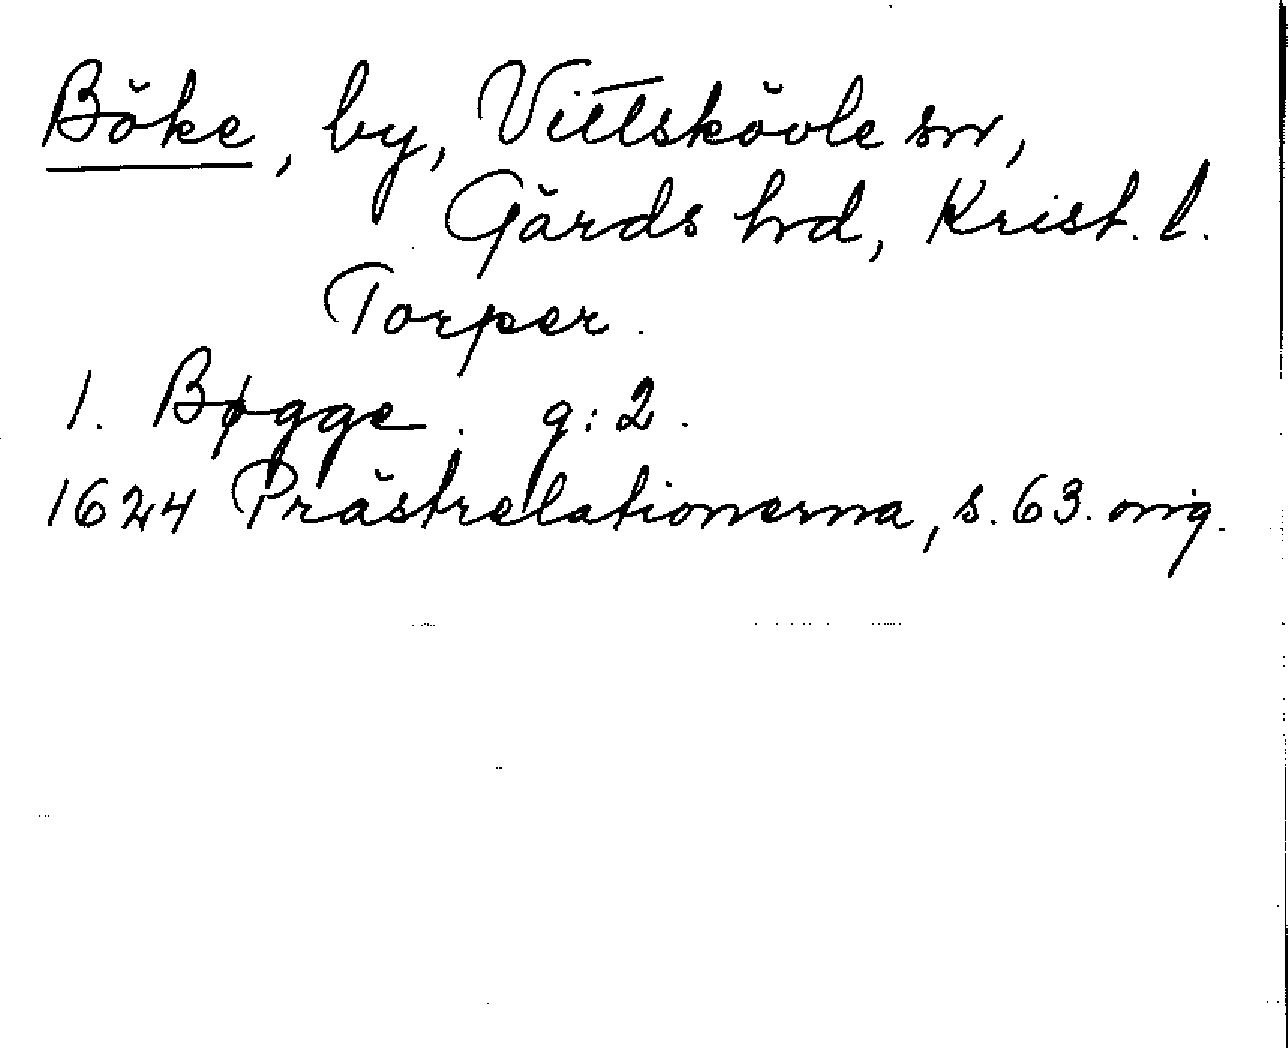 Böke, by, Vittskövle sn,
Gärds hrd, Krist. l.
Torper.
1. Bøgge. g:2.
1624 Prästrelationerna, s. 63. orig.